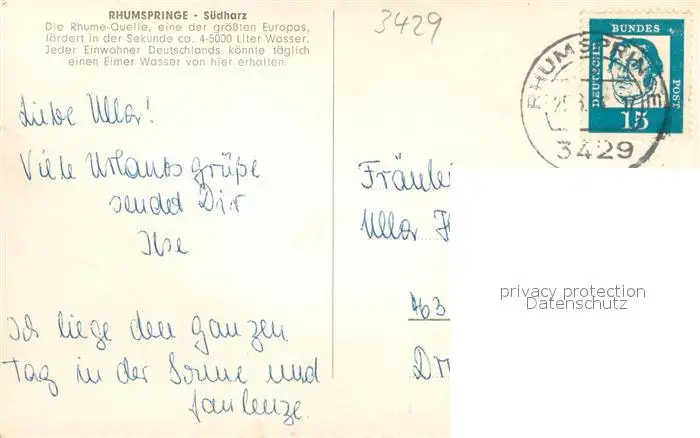 RHUMSPRINGE - Südharz
Die Rhume-Quelle, eine der größten Europas,
fördert in der Sekunde ca. 4-5000 Liter Wasser.
Jeder Einwohner Deutschlands könnte täglich
einen Eimer Wasser von hier erhalten.
3429
DEUTSCHE BUNDES POST
15
RHUMSPRINGE
3429
Liebe Ulla!
Viele Urlaubsgrüße
sendet Dir
Ilse
Ich liege den ganzen
Tag in der Sonne und
faulenze.
Fräulei
Ulla H
463
privacy protection
Datenschutz